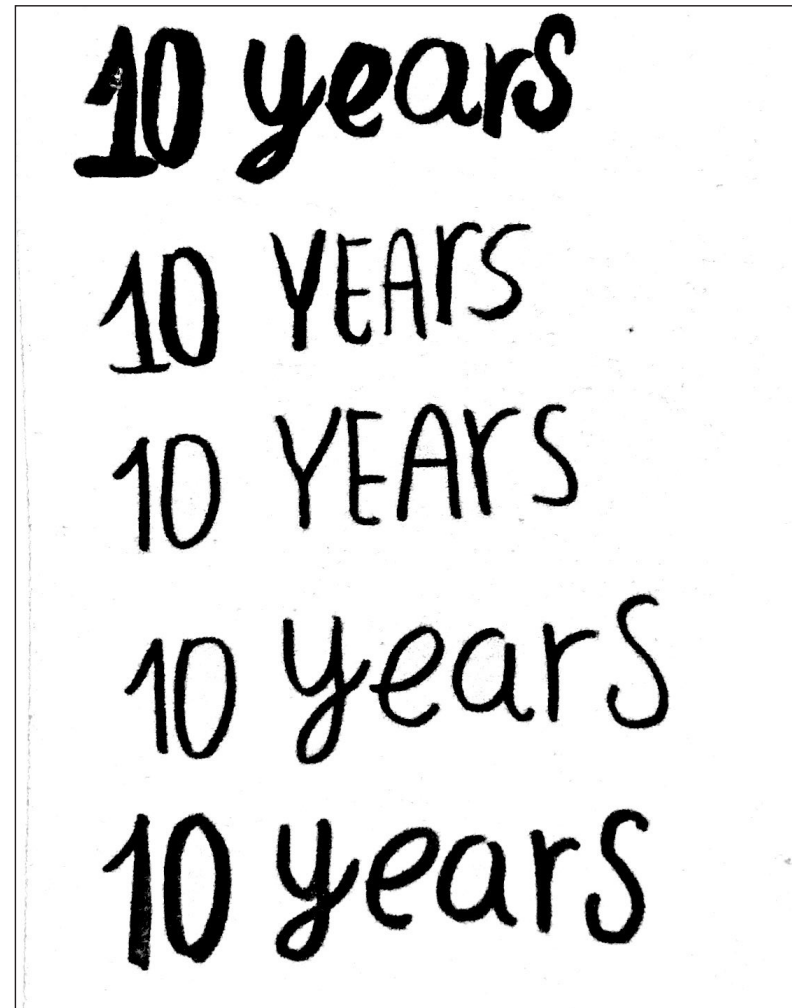 10 years
10 YEArS
10 YEArS
10 years
10 years